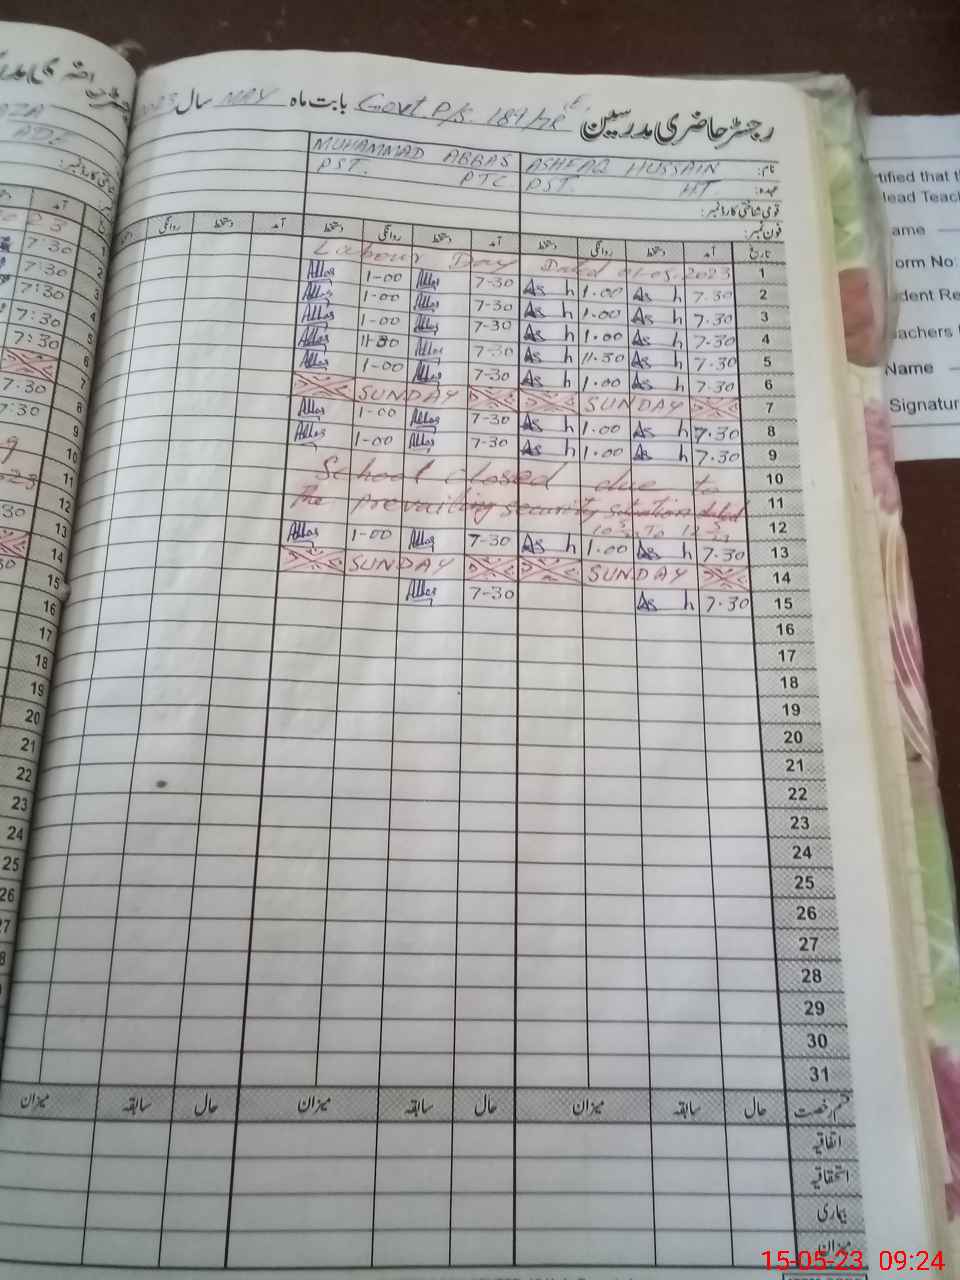 رجسٹر حاضری مدرسین Govt P/s 189/7R بابت ماہ MAY سال 2023
نام: ASHFAQ HUSSAIN MUHAMMAD ABBAS
عہدہ: PST. HT. PST. PTC
قومی شناختی کارڈ نمبر:
فون نمبر:
تاریخ آمد دستخط روانگی دستخط آمد دستخط روانگی دستخط آمد روانگی
1 Labour Day Dated 01-05-2023
2 7.30 As h 1.00 As h 7-30 Abbas 1-00 Abbas
3 7.30 As h 1.00 As h 7-30 Abbas 1-00 Abbas
4 7.30 As h 1.00 As h 7-30 Abbas 1-00 Abbas
5 7.30 As h 11.30 As h 7-30 Abbas 11-30 Abbas
6 7.30 As h 1.00 As h 7-30 Abbas 1-00 Abbas
7 SUNDAY SUNDAY
8 7.30 As h 1.00 As h 7-30 Abbas 1-00 Abbas
9 7.30 As h 1.00 As h 7-30 Abbas 1-00 Abbas
10 School closed due to
11 The prevailing security situation dated
12 To
13 7.30 As h 1.00 As h 7-30 Abbas 1-00 Abbas
14 SUNDAY SUNDAY
15 7.30 As h 7-30 Abbas
16
17
18
19
20
21
22
23
24
25
26
27
28
29
30
31
قسم رخصت حال سابقہ میزان حال سابقہ میزان حال سابقہ میزان
اتفاقیہ
استحقاقیہ
بیماری
میزان
7:30
7:30
7:30
7:30
7:30
7:30
Name
Signatur
15-05-23 09:24